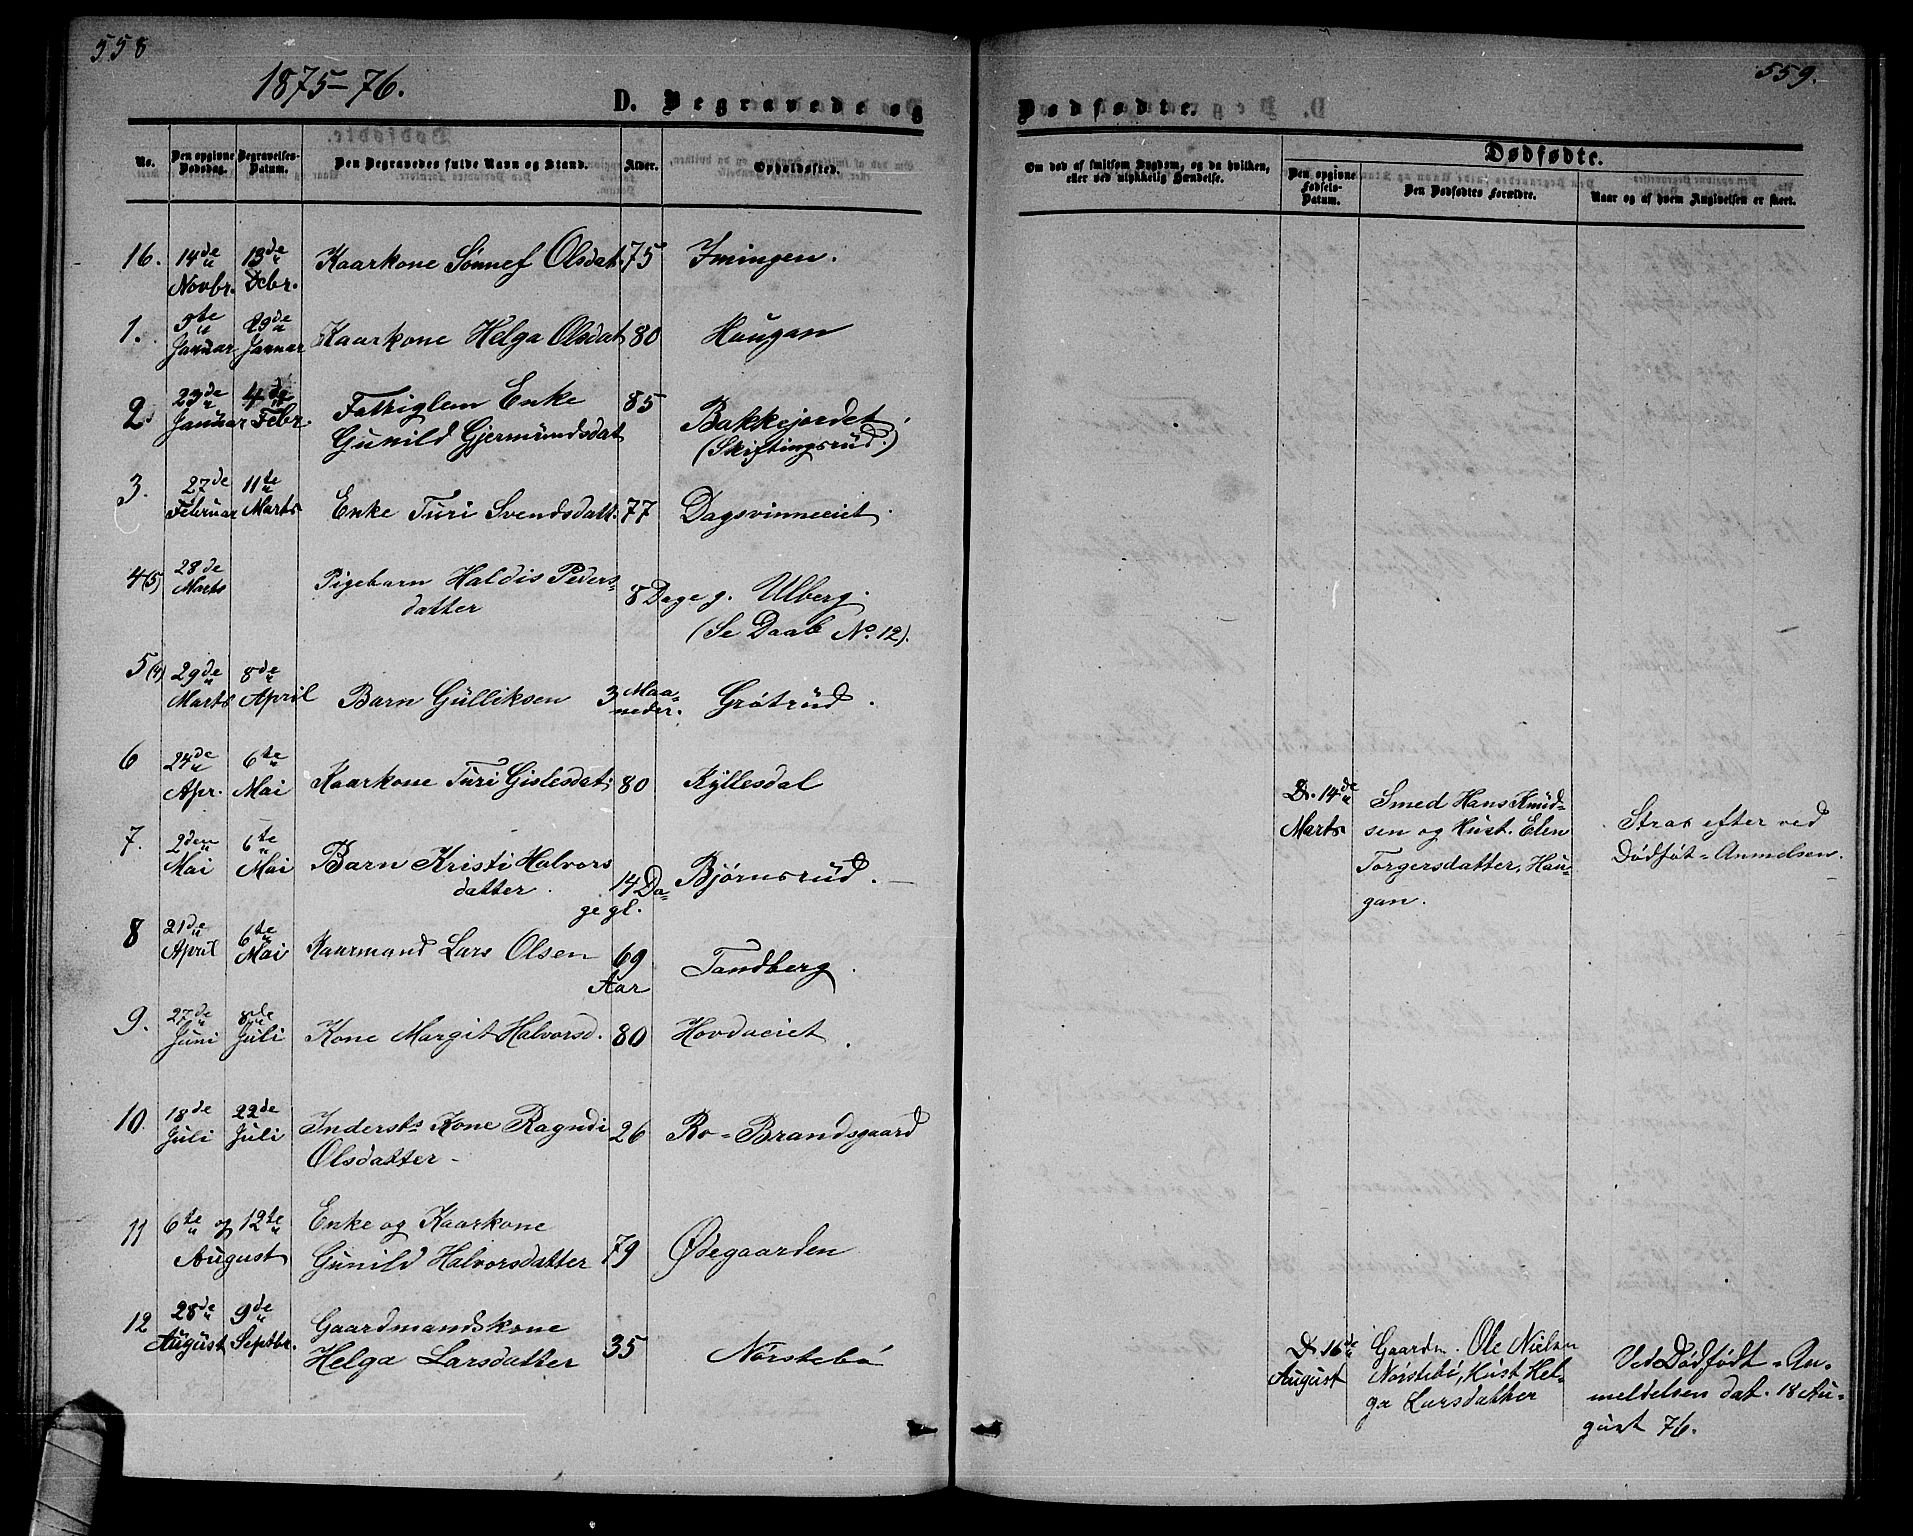 558
1875–76.
D. Begravede og
No.
Den opgivne Dødsdag.
Begravelses-Datum.
Den Begravedes fulde Navn og Stand.
Alder.
Opholdssted.
16. 14de Novbr. 13de Debr. Kaarkone Sønnef Olsdat. 75 Imingen.
1. 9te Januar 29de Januar Kaarkone Helga Olsdat 80 Haugan
2. 23de Januar 4de Febr. Fattiglem Enke 85 Bakkejordet
Gunild Gjermundsdat (Skiftingsrud.)
3. 27de Februar 11te Marts Enke Turi Svendsdatt. 77 Dagsvinneeiet.
4(5) 28de Marts Pigebarn Haldis Peders-
datter 8 Dage g. Ulberg.
(Se Daab No. 12).
5(4) 29de Marts 8de April Barn Gulliksen 3 Maa-
neder. Grötrud.
6 24de Apr. 6te Mai Kaarkone Turi Gislesdat. 80 Kyllesdal
7. 2den Mai 6te Mai Barn Kristi Halvors
datter. 14 Da-
ge gl. Bjørnsrud.
8 21de April 6te Mai Kaarmand Lars Olsen 69
Aar Tandberg.
9. 27de Juni 8de Juli Kone Margit Halvorsd. 80 Hovdaeiet.
10. 18de Juli 22de Juli Inderst's Kone Ragndi 26 Ro-Brandsgaard
Olsdatter
11 6te og 12te Enke og Kaarkone
August Gunild Halvorsdatter 79 Ødegaarden
12 28de August 9de Septbr. Gaardmandskone
Helga Larsdatter 35 Nörstebö
559.
Dødfødte.
Om død af smitsom Sygdom, og da hvilken,
eller ved ulykkelig Hændelse.
Dødfødte.
Den opgivne Fødsels-Datum.
Den Dødfødtes Forældre.
Naar og af hvem Angivelsen er skeet.
D. 14de Smed Hans Knud-
Marts sen og Hust. Elen Strax efter ved
Torgersdatter, Hau- Dödföt-Anmelsen.
gan.
D. 16de Gaardm. Ole Nielsen Ved Dödfödt-An-
August Nörstebö, Hust Hel- meldelsen dat. 18 Au-
ga Larsdatter gust 76.